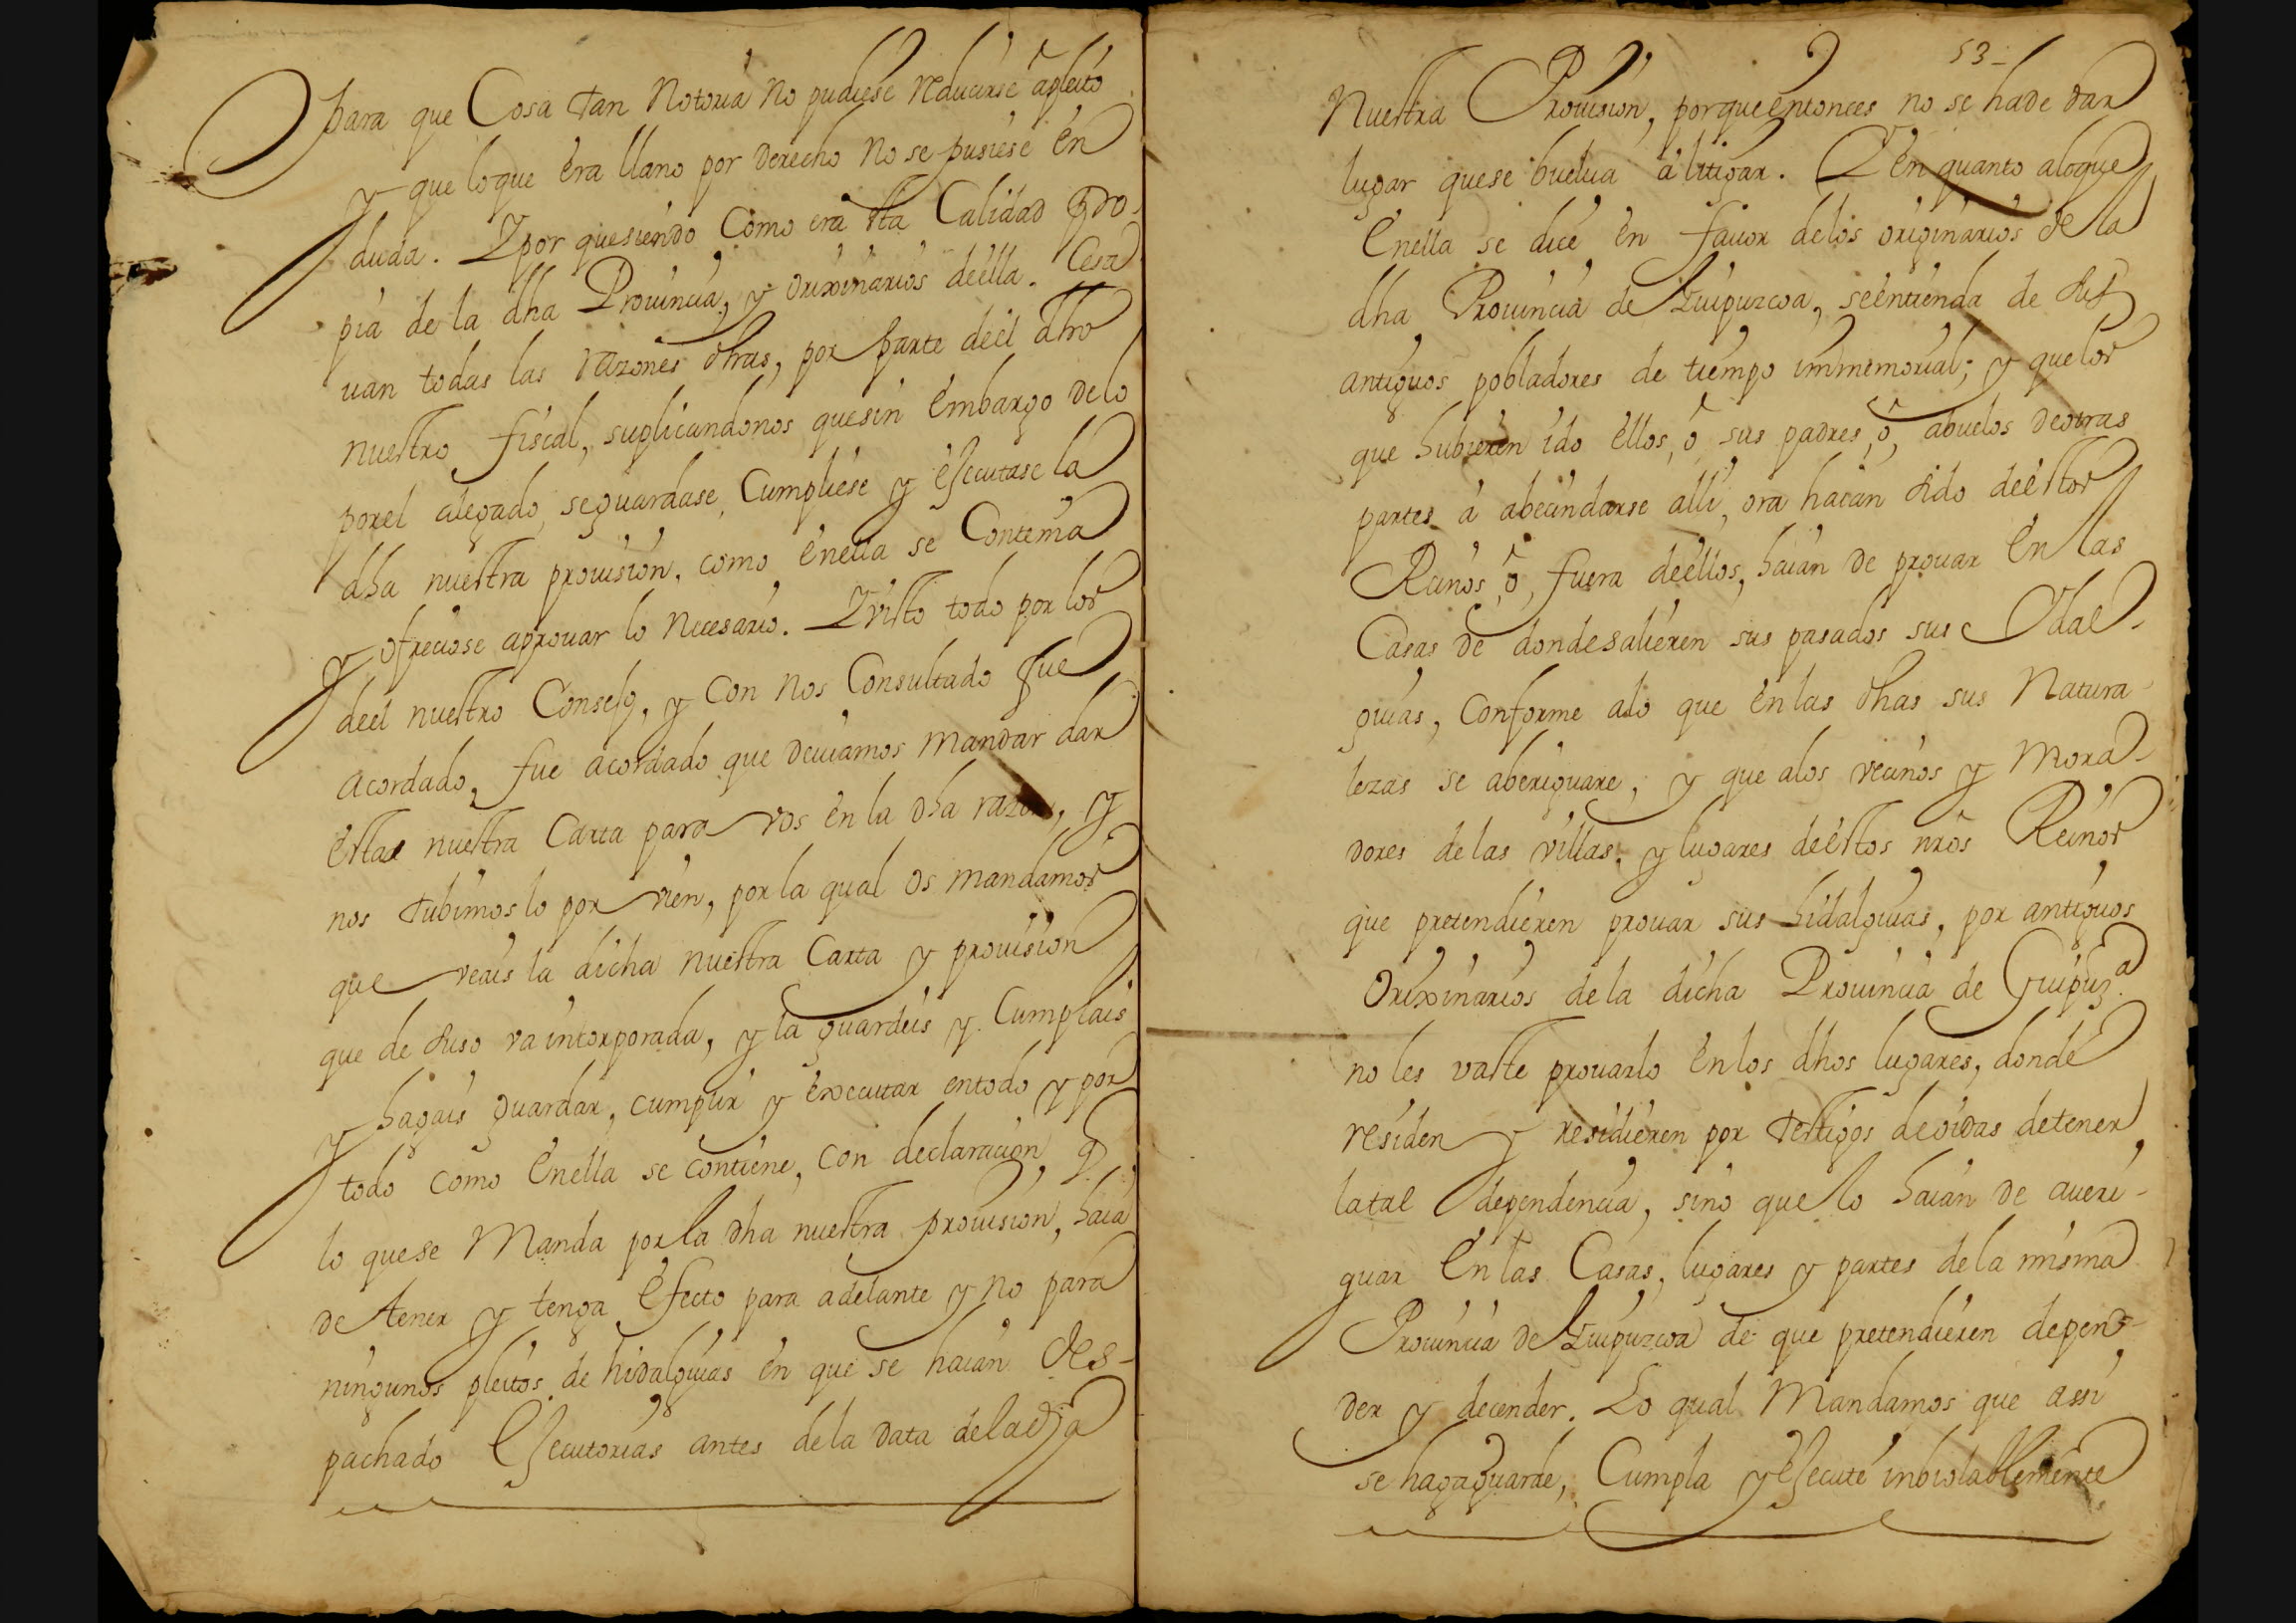 para que Cosa tan Notoria no pudiese reducirse â pleito
y que loque era llano por derecho no se pusiese en
duda. Y por que siendo como era esta Calidad pro-
pia de la dha Prouincia, y orixinarios deella. Cesa
uan todas las razones dhas, por parte deel dho
nuestro fiscal, suplicandonos que sin embargo de lo
por el alegado, se guardase, Cumpliese y essecutase la
dha nuestra prouision, como en ella se Contenia
y ofreciose aprouar lo Necesario. Y visto todo por los
deel nuestro Consejo, y con nos Consultado fue
acordado, fue acordado que deuiamos mandar dar
esta nuestra Carta para vos en la dha razon, y
nos tubimoslo por vien, por la qual os mandamos
que veais la dicha nuestra Carta y prouision
que de suso va intorporada, y la guardeis y Cumplais
y hagais guardar, cumplir y executar entodo y por
todo como en ella se contiene, con declaracion, q.
lo que se Manda por la dha nuestra prouision, haia
de tener y tenga efecto para adelante y no para
ningunos pleitos de hidalguias en que se haian des-
pachado Essecutorias antes de la data de la dha
53-
Nuestra Prouision, porque entonces no se ha de dar
lugar que se buelua a litigar. Y en quanto aloque
en ella se dice en fauor delos originarios de la
dha Prouincia de Guipuzcoa, se entienda de sus
antiguos pobladores de tiempo immemorial; y que los
que hubieren ido ellos, ô, sus padres, ô, abuelos de otras
partes a abecindarse alli, ora haian sido deestos
Reinos, ô, fuera deellos, haian de prouar en las
Casas de donde salieren sus pasados sus Ydal-
guias, Conforme alo que en las dhas sus Natura-
lezas se aberiguare; y que alos vecinos y Mora-
dores de las villas, y lugares deestos nros Reinos
que pretendieren prouar sus hidalguias, por antiguos
Orixinarios de la dicha Prouincia de Guipuz.a
no les vaste prouarlo en los dhos lugares, donde
residen y residieren por testigos de oidas de tener
la tal dependencia, sino que lo haian de aueri-
guar en las Casas, lugares y partes de la misma
Prouincia de Guipuzcoa de que pretendieren depen-
der y decender. Lo qual Mandamos que assi
se haga guarde, Cumpla y essecute inbiolablemente